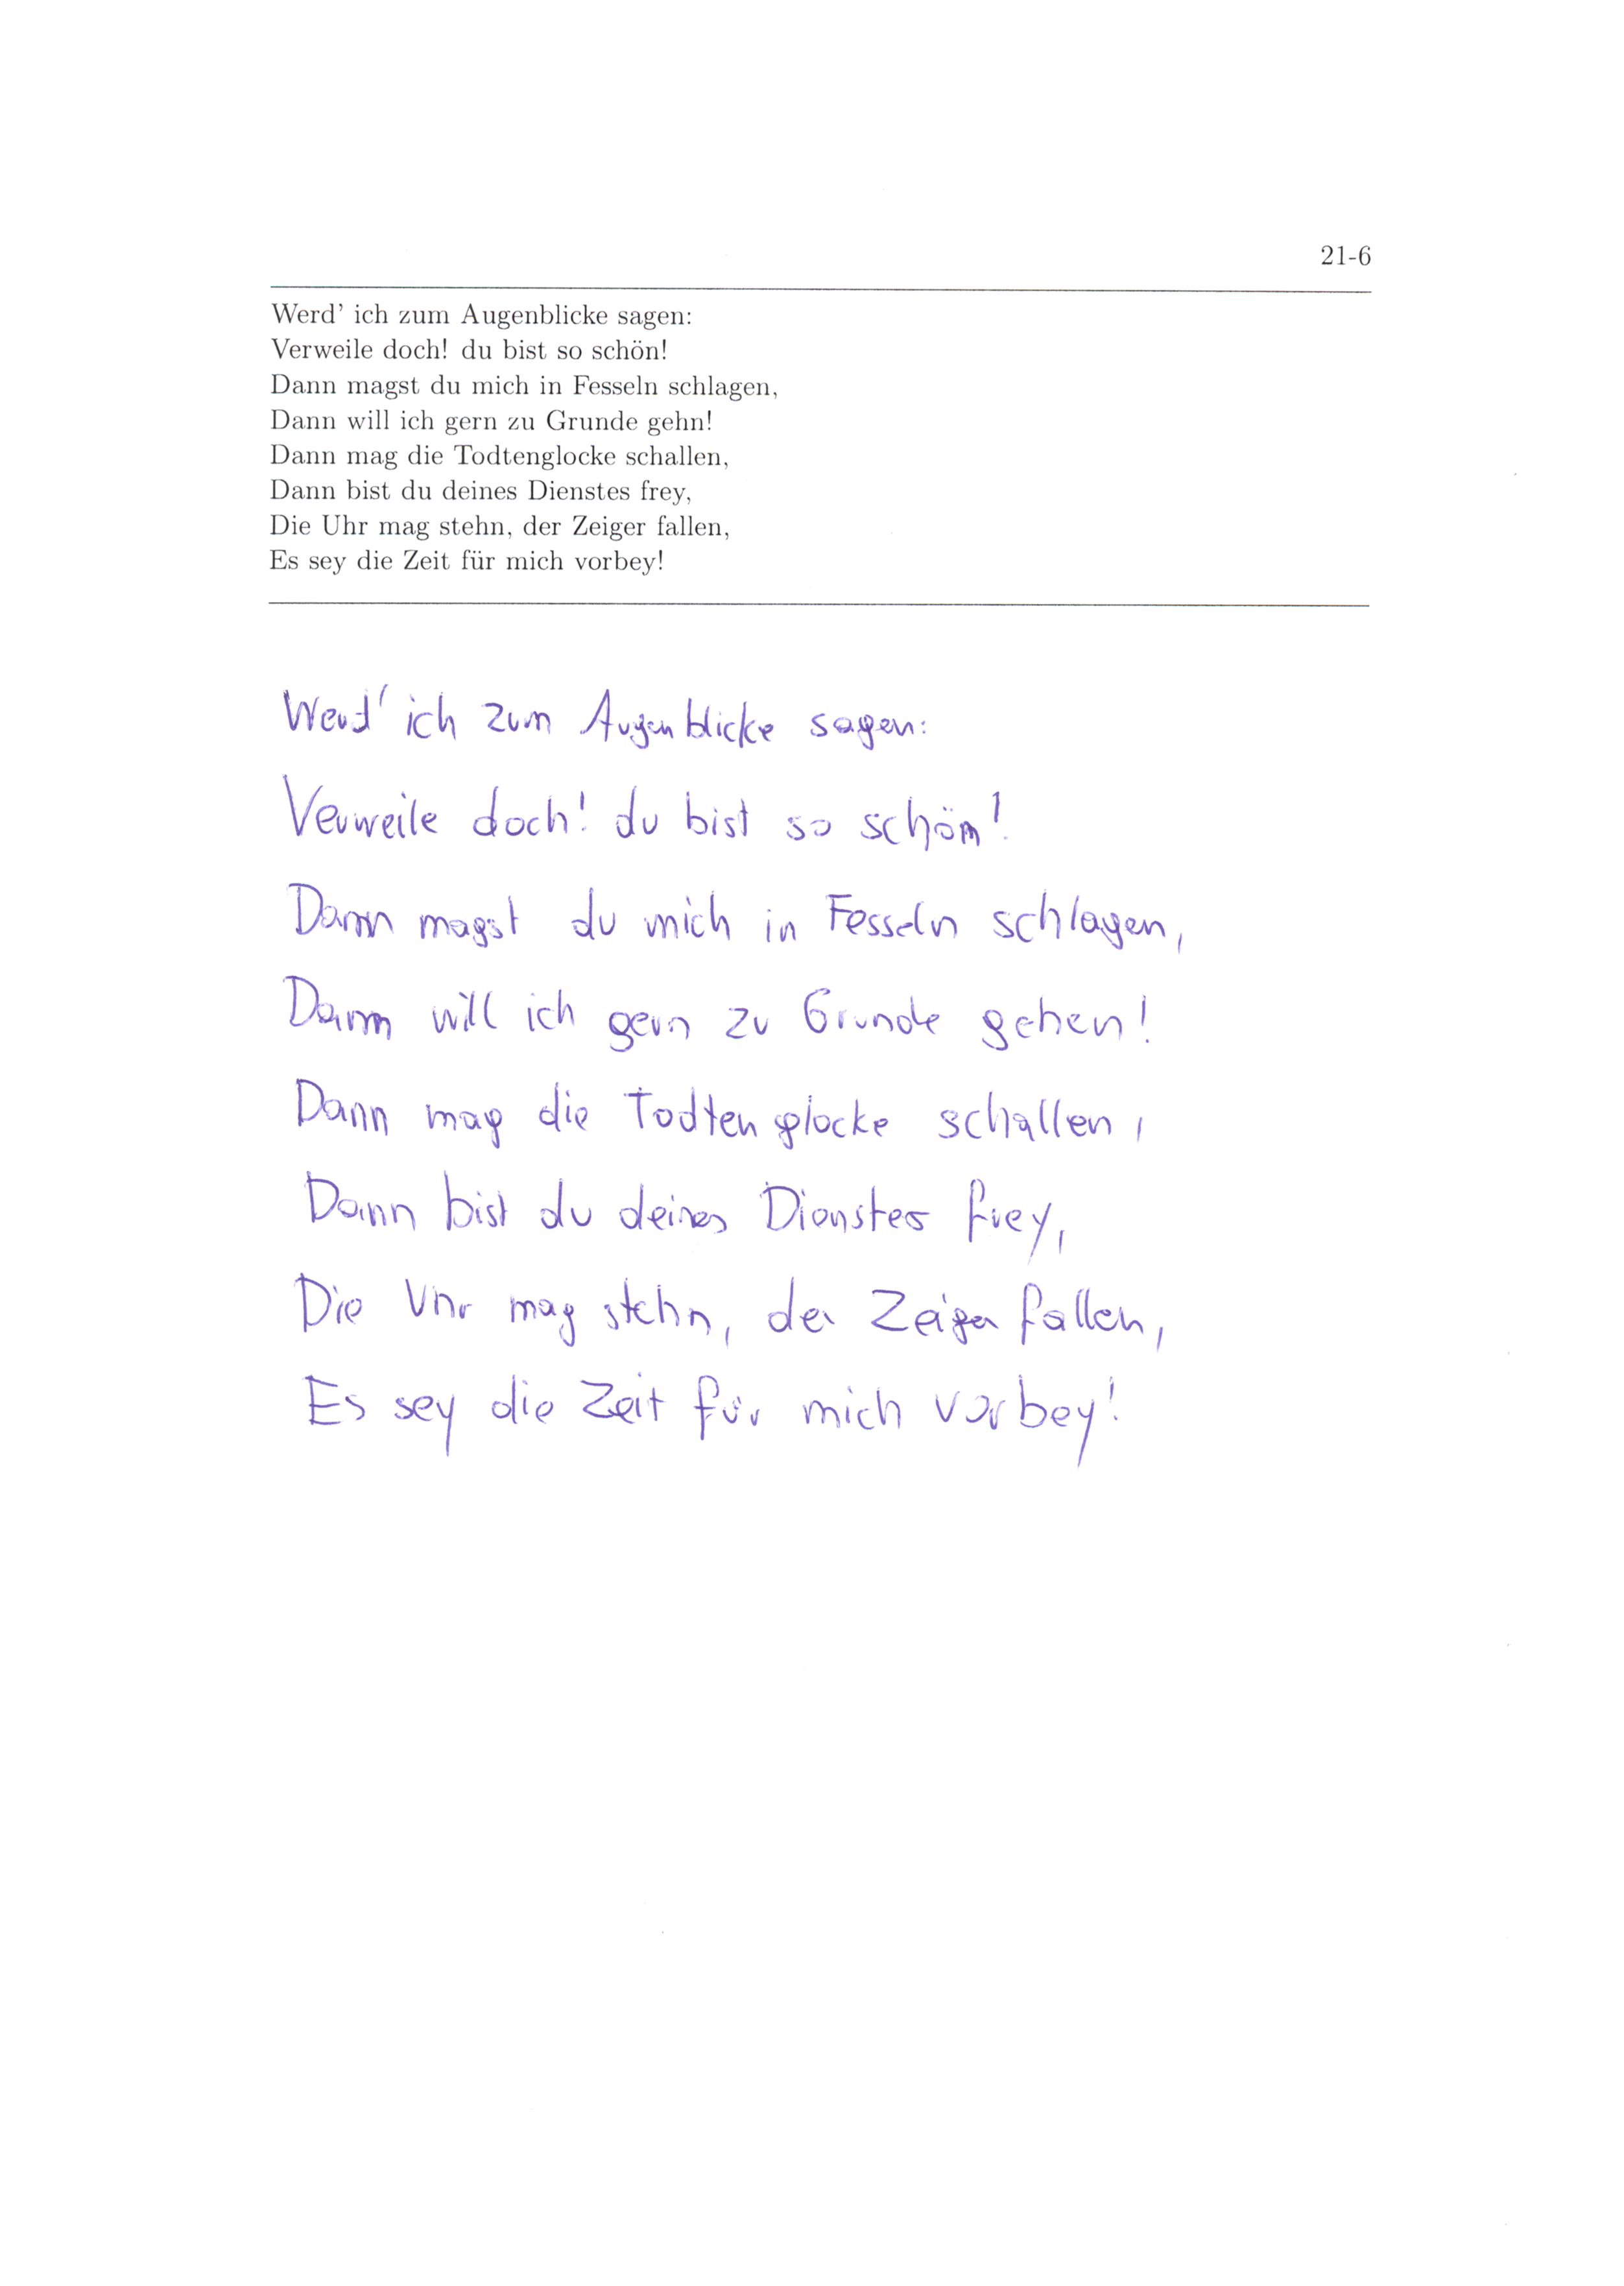 21-6
Werd' ich zum Augenblicke sagen:
Verweile doch! du bist so schön!
Dann magst du mich in Fesseln schlagen,
Dann will ich gern zu Grunde gehn!
Dann mag die Todtenglocke schallen,
Dann bist du deines Dienstes frey,
Die Uhr mag stehn, der Zeiger fallen,
Es sey die Zeit für mich vorbey!
Werd' ich zum Augenblicke sagen:
Verweile doch! du bist so schön!
Dann magst du mich in Fesseln schlagen,
Dann will ich gern zu Grunde gehen!
Dann mag die Todtenglocke schallen,
Dann bist du deines Dienstes frey,
Die Uhr mag stehn, der Zeiger fallen,
Es sey die Zeit für mich vorbey!